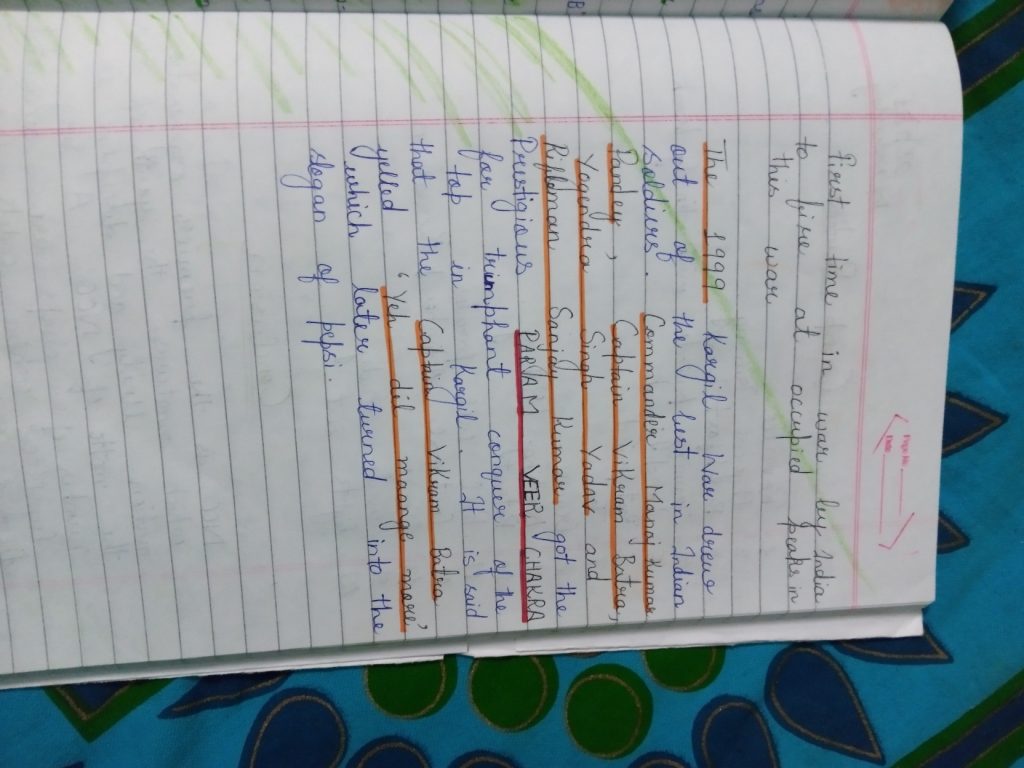 Page No.
Date
First time in war by India
to fire at occupied peaks in
this war
The 1999 Kargil War drew
out of the best in Indian
soldiers. Commander Manoj Kumar
Pandey, Captain Vikram Batra,
Yogendra Singh Yadav and
Rifleman Sanjay Kumar got the
Prestigious PARAM VEER CHAKRA
for trumphant conquer of the
top in Kargil. It is said
that the Captain Vikram Batra
yelled 'Yeh dil maange more'
which later turned into the
slogan of pepsi.